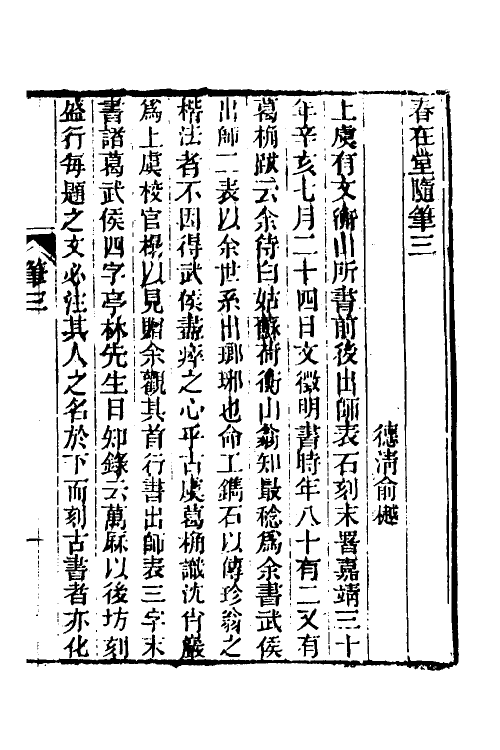 春在堂隨筆三
德淸俞樾
上虞有文衡山所書前後出師表石刻末署嘉靖三十
年辛亥七月二十四日文徵明書時年八十有二又有
葛桷跋云余待白姑蘇荷衡山翁知最稔爲余書武侯
出師二表以余世系出瑯琊也命工鐫石以傳珍翁之
楷法者不因得武侯盡瘁之心乎古虞葛桷識沈肖巖
爲上虞校官榻以見贈余觀其首行書出師表三字末
書諸葛武侯四字亭林先生日知錄云萬厤以後坊刻
盛行每題之文必注其人之名於下而刻古書者亦化
筆三
一